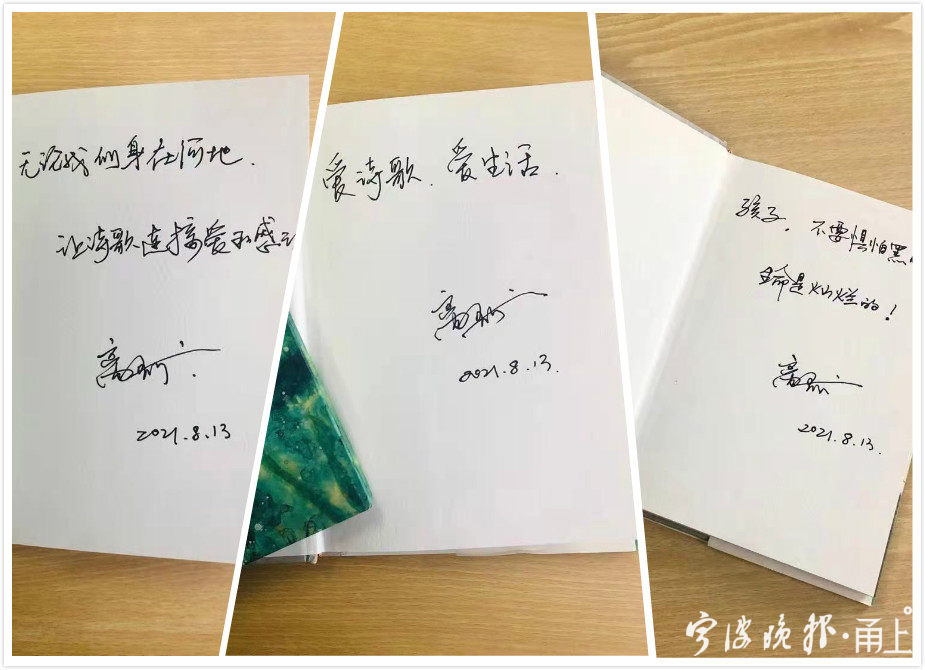 无论我们身在何地.
让诗歌连接爱和感
2021.8.13
爱诗歌.爱生活.
2021.8.13.
孩子,不要惧怕黑
生命是灿烂的!
2021.8.13.
宁波晚报·甬上